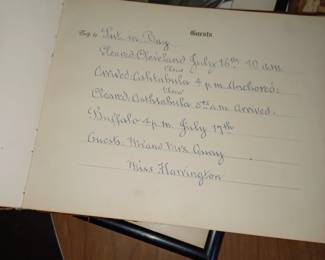 Guests
Trip to Put in Bay
Cleared Cleveland July 16th 10 a.m.
Clear
Arrived Ashtabula 4 p.m. Anchored.
Clear
Cleared Ashtabula 5 a.m. Arrived
Buffalo 4 p.m. July 17th
Guests. Mr and Mrs Quay
Miss Harrington